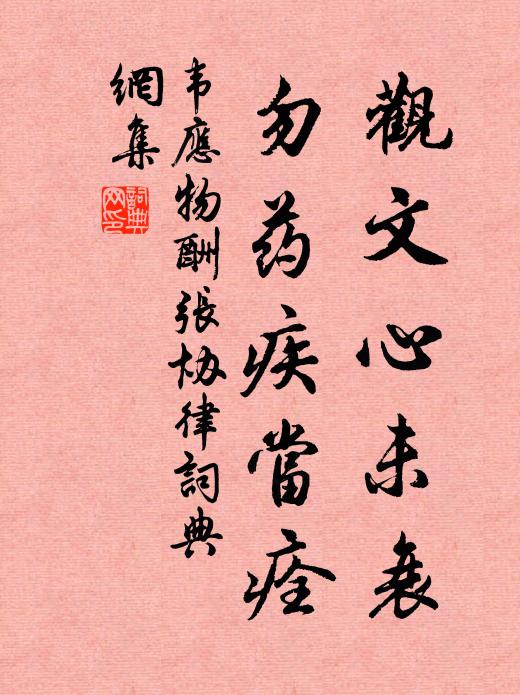 觀文心未衰
勿药疾當痊
韦應物酬張协律詞典
網集
詞典网印